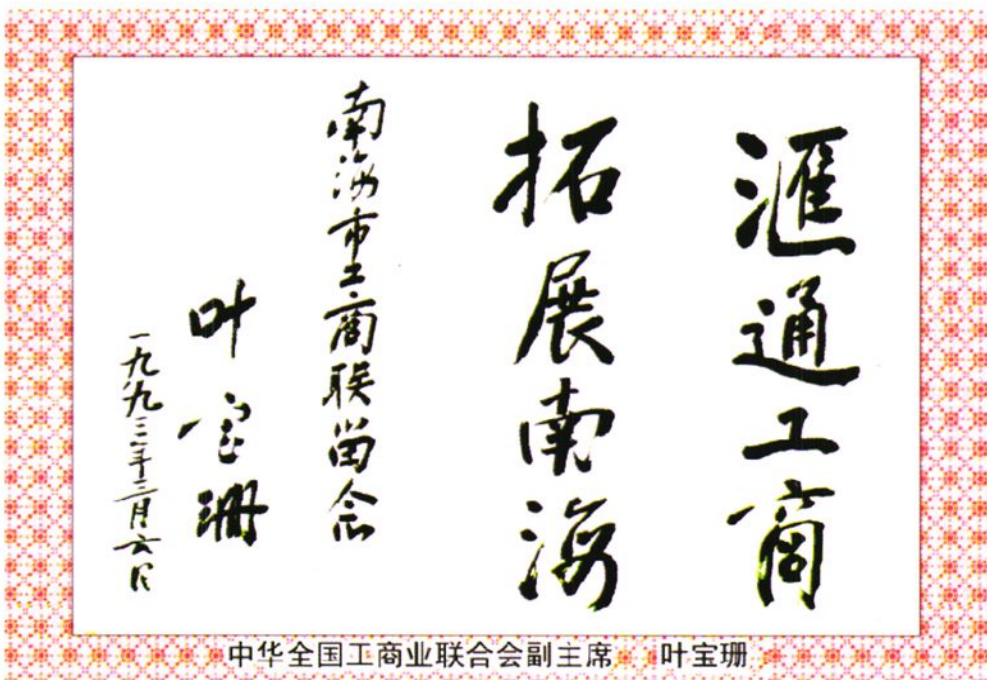 滙通工商
拓展南海
南海市工商联留念
叶宝珊
一九九三年三月六日
中华全国工商业联合会副主席 叶宝珊